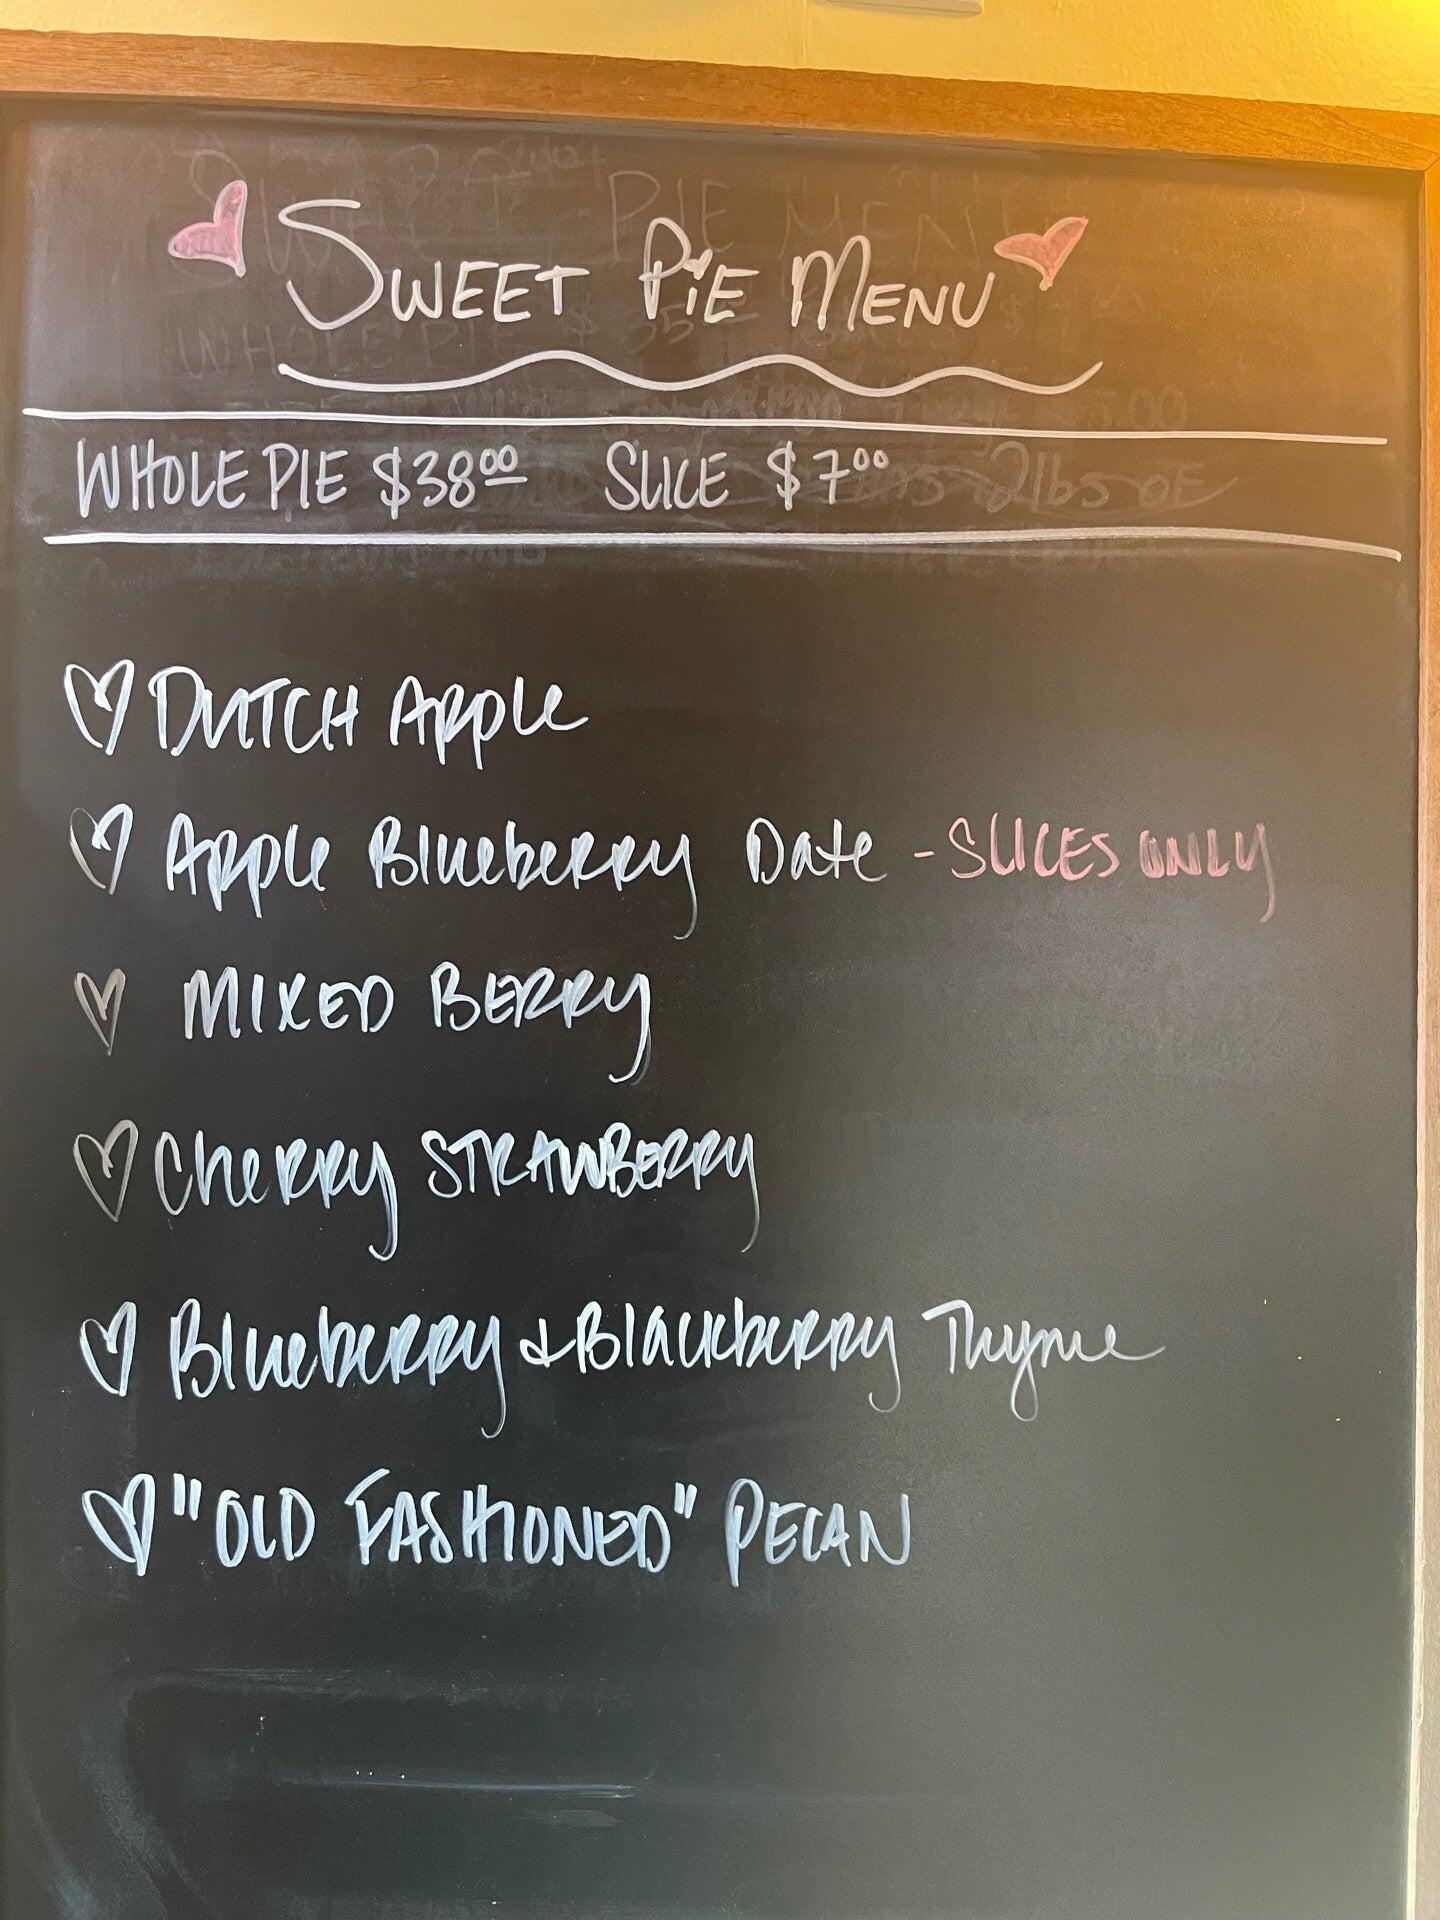 SWEET PIE MENU
WHOLE PIE $38.00 SLICE $7.00
DUTCH APPLE
APPLE BLUEBERRY DATE - SLICES ONLY
MIXED BERRY
CHERRY STRAWBERRY
BLUEBERRY & BLACKBERRY THYME
"OLD FASHIONED" PECAN